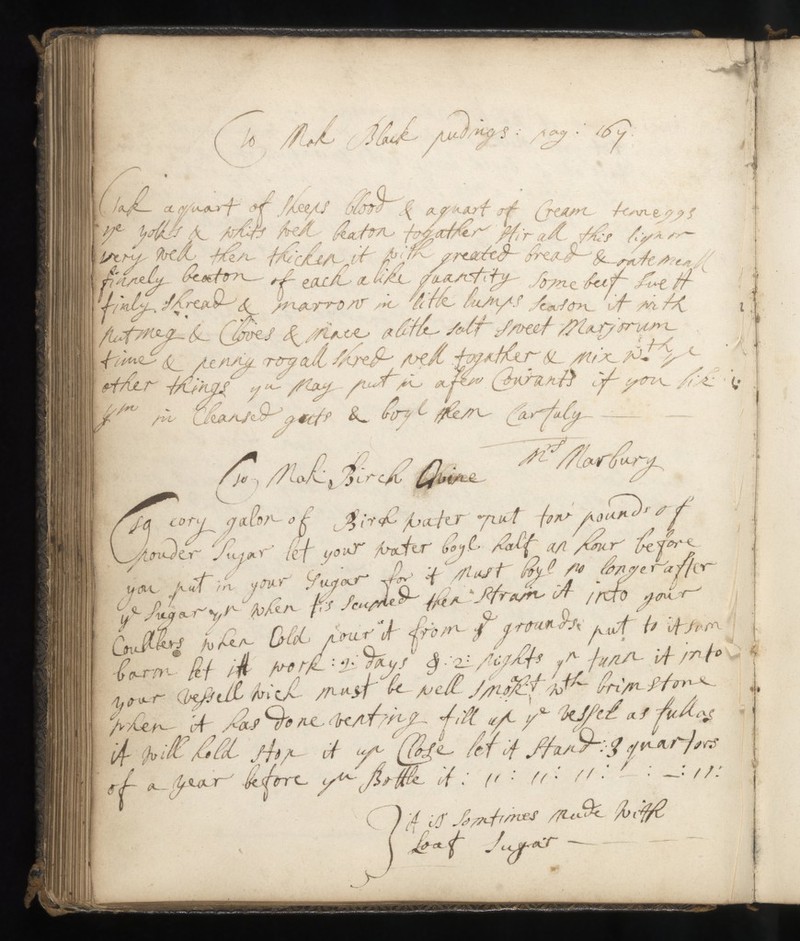 To Mak Black pudings: pag: 167:
Tak a quart of sheeps blood & a quart of Cream tenn eggs
ye yolks & whits well beaton togather stir all this liquor
very well then thicken it with greated bread & oatemeall
finnely beaton of each a like quantity some beef suett
finly shread & marrow in litle lumps season it with
nutmeg & Cloves & mace a litle salt sweet Marjorum
time & penny royall shred well togather & mix wth ye
other things yu may put in a few Courants if you lik
ym in Cleansed guts & boyl them Carfuly
Mrs Marbury
To Mak Birch Wine
To every galon of Birch water put tow pounds of
pouder Sugar let your water boyl half an hour before
you put in your Sugar for it must boyl no longer after
ye Sugar yn when tis scumed then strain it into your
Coullers when Cold pour it from ye grounds: put to it sum
barm let itt work :2: days &:2: nights yn tunn it into
your vessell wich must be well smokt wth brimstone
when it has done venting fill up ye vessel as full as
it will hold stop it up Close let it stand :3 quartors
of a year before yu Bottle it:
it is somtimes made with
Loaf Sugar